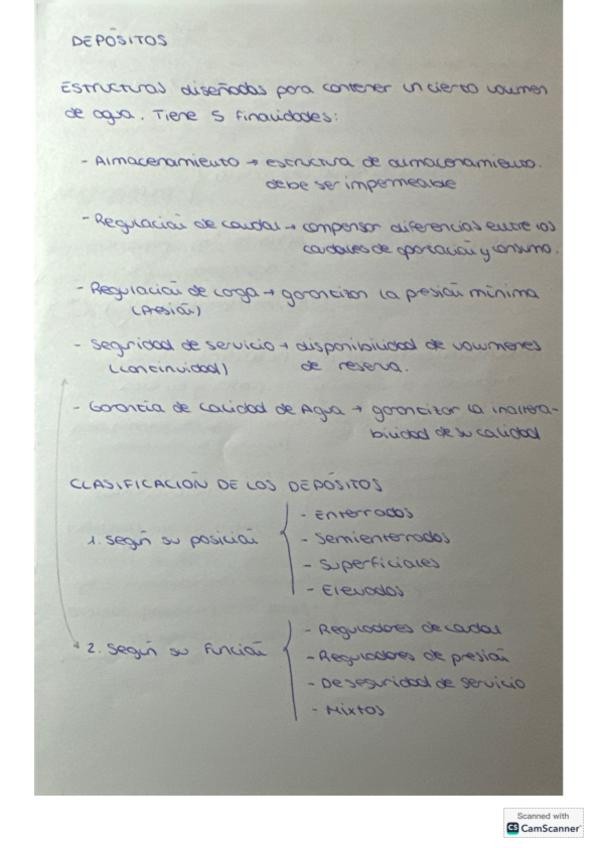 DEPÓSITOS
Estructuras diseñadas para contener un cierto volumen
de agua. Tiene 5 finalidades:
- Almacenamiento → estructura de almacenamiento.
debe ser impermeable
- Regulación de caudal → compensar diferencias entre los
caudales de aportación y consumo.
- Regulación de carga → garantizar la presión mínima
(Presión)
- Seguridad de servicio → disponibilidad de volumenes
(continuidad) de reserva.
- Garantía de calidad de Agua → garantizar la inaltera-
bilidad de su calidad
CLASIFICACIÓN DE LOS DEPÓSITOS
1. Según su posición
- Enterrados
- Semienterrados
- Superficiales
- Elevados
2. Según su función
- Reguladores de caudal
- Reguladores de presión
- De seguridad de servicio
- Mixtos
Scanned with
CS CamScanner